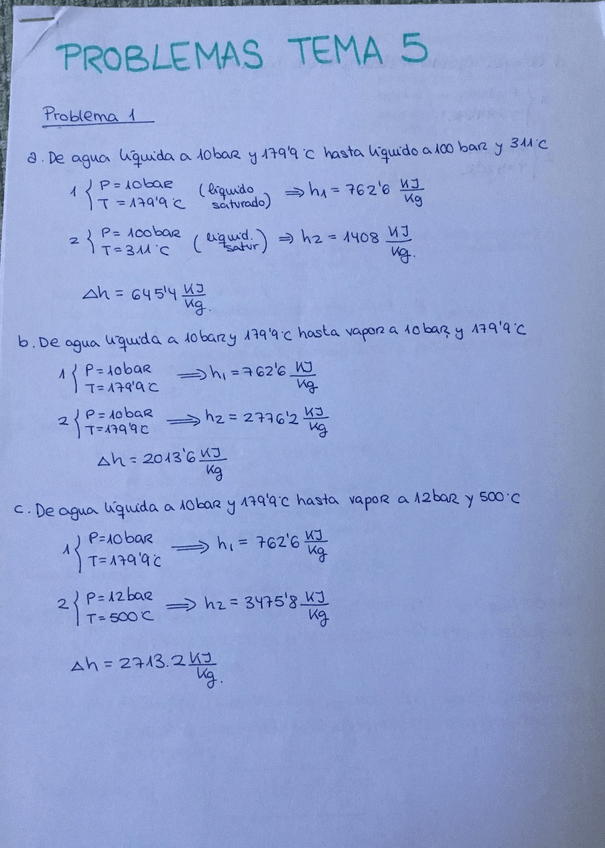 PROBLEMAS TEMA 5
Problema 1
a. De agua líquida a 10baR y 179'9°C hasta líquido a 100 baR y 311°C
1 { P = 10baR (líquido saturado) ⇒ h1 = 762'6 KJ/Kg
T = 179'9°C
2 { P = 100baR (líquid. satur) ⇒ h2 = 1408 KJ/Kg.
T = 311°C
Δh = 645'4 KJ/Kg.
b. De agua líquida a 10baR y 179'9°C hasta vapoR a 10baR, y 179'9°C
1 { P = 10baR ⇒ h1 = 762'6 KJ/Kg
T = 179'9°C
2 { P = 10baR ⇒ h2 = 2776'2 KJ/Kg
T = 179'9°C
Δh = 2013'6 KJ/Kg
c. De agua líquida a 10baR y 179'9°C hasta vapoR a 12baR y 500°C
1 { P = 10baR ⇒ h1 = 762'6 KJ/Kg
T = 179'9°C
2 { P = 12baR ⇒ h2 = 3475'8 KJ/Kg
T = 500°C
Δh = 2713.2 KJ/Kg.